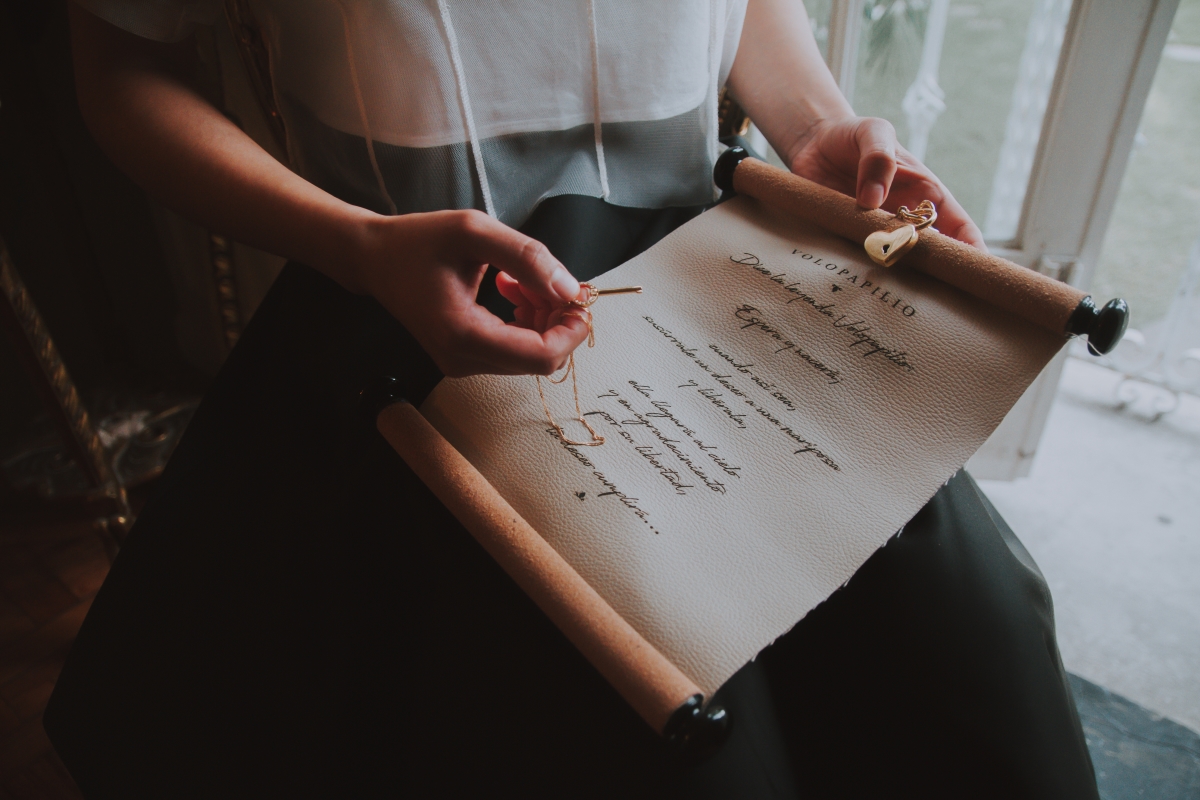 VOLOPAPILIO
Dice la leyenda Volopapilio
Espera y vuela,
susúrrale un deseo a una mariposa
cuando así sea,
y libérala,
ella llegará al cielo
y en agradecimiento
por su libertad,
tu deseo cumplirá...